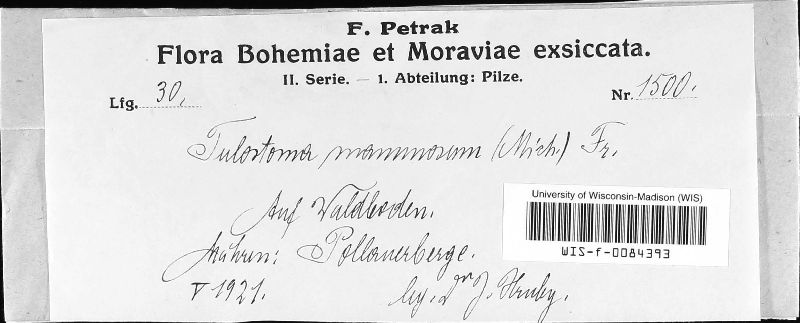 F. Petrak
Flora Bohemiae et Moraviae exsiccata.
II. Serie. — 1. Abteilung: Pilze.
Lfg. 30.
Nr. 1500.
Tulostoma mammosum (Mich.) Fr.
Auf Waldboden.
Mähren: Pollauerberge.
V 1921.
leg. Dr J. Hruby.
University of Wisconsin-Madison (WIS)
WIS-f-0084393